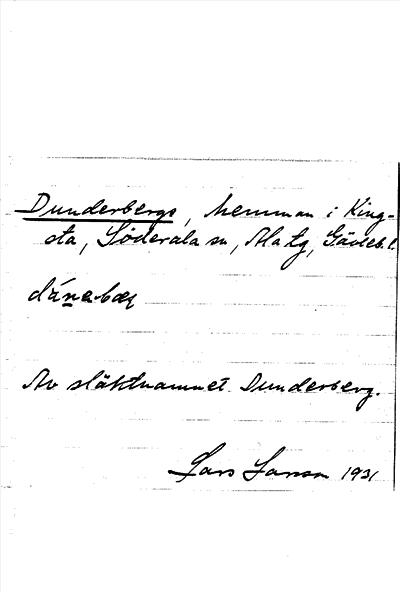 Dunderbergs, hemman i King-
sta, Söderala sn, Ala tg, Gävleb. l.
Av släktnamnet Dunderberg.
Lars Larson 1931